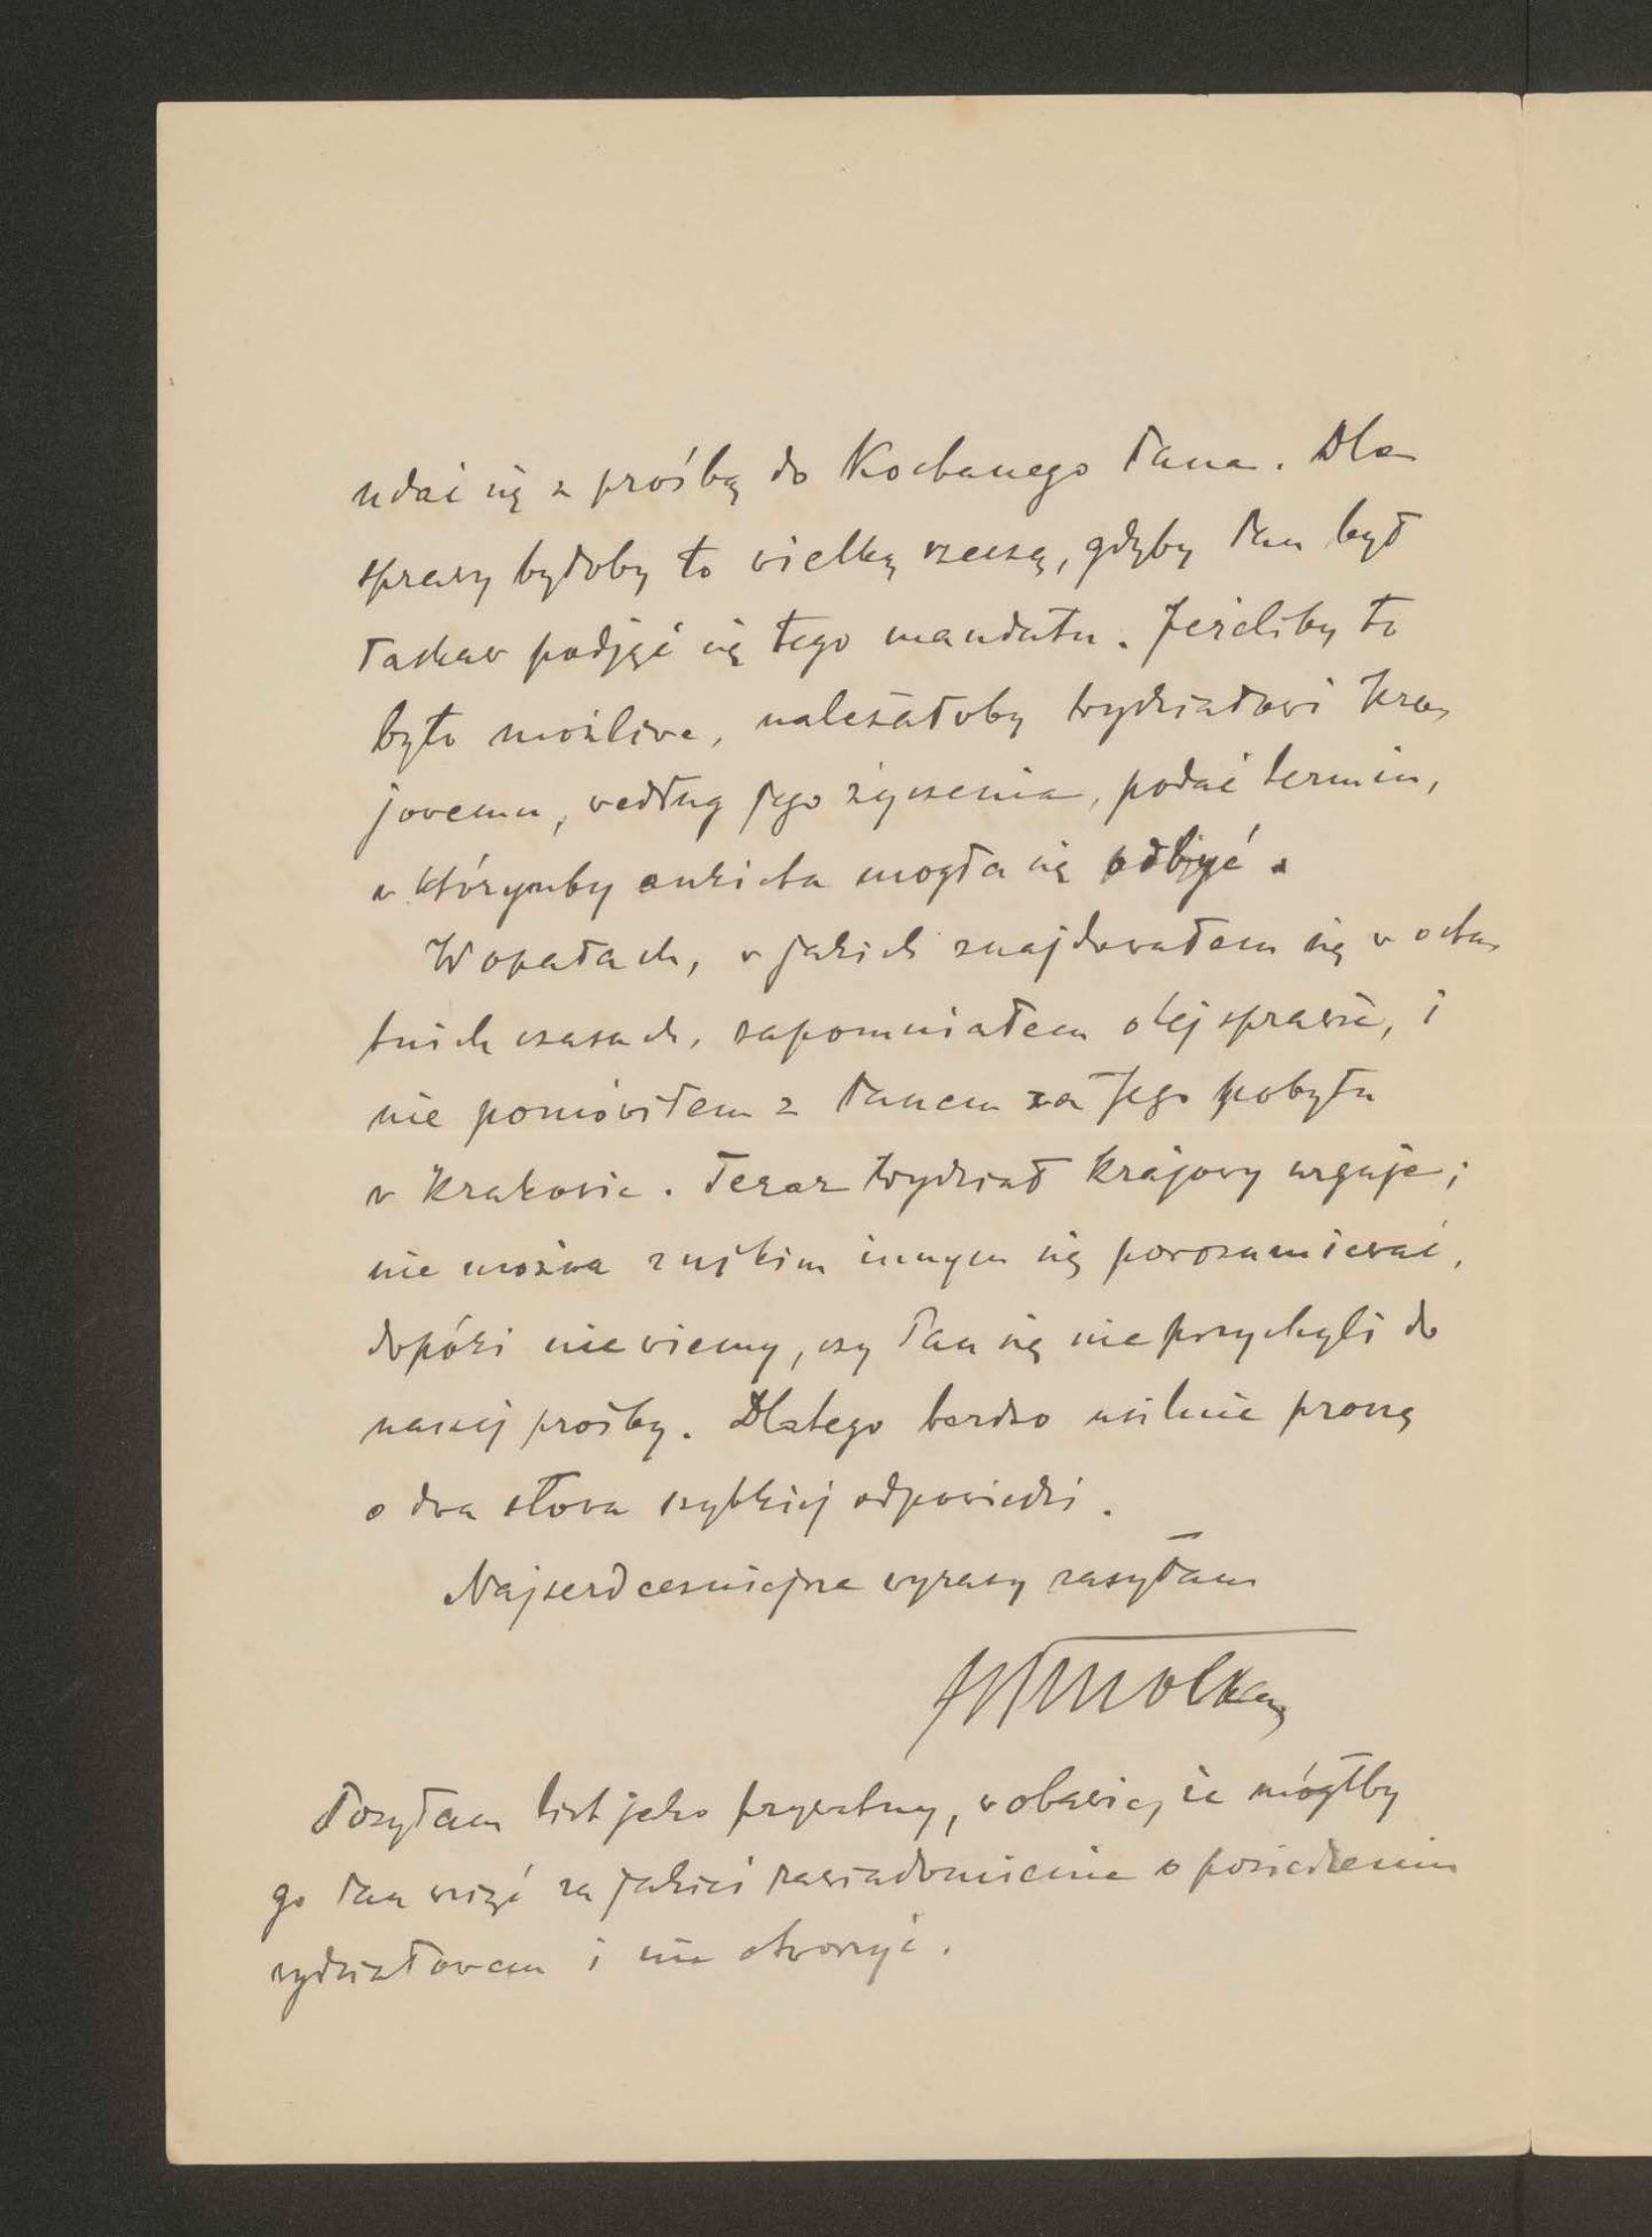 udać się z prośbą do Kochanego Pana. Dla
sprawy byłoby to wielką rzeczą, gdyby Pan był
łaskaw podjąć się tego mandatu. Jeżeliby to
było możliwe, należałoby Wydziałowi Kra-
jowemu, według Jego życzenia, podać termin,
w którymby ankieta mogła się odbyć.
W opałach, w jakich znajdowałem się w osta-
tnich czasach, zapomniałem o tej sprawie, i
nie pomówiłem z Panem za Jego pobytu
w Krakowie. Teraz Wydział Krajowy urguje;
nie można z nikim innym się porozumiewać,
dopóki nie wiemy, czy Pan się nie przychyli do
naszej prośby. Dlatego bardzo usilnie proszę
o dwa słowa szybkiej odpowiedzi.
Najserdeczniejsze wyrazy zasyłam
Smolka
Posyłam list jako prywatny, w obawie, że mógłby
go Pan wziąć za jakieś zawiadomienie o posiedzeniu
wydziałowem i nie otworzyć.